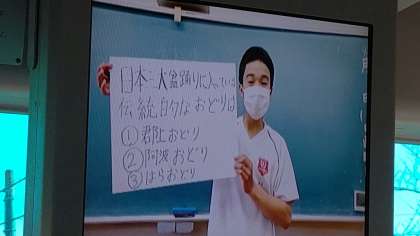 日本三大盆踊りに入っている
伝統的なおどりは
①郡上おどり
②阿波おどり
③はらおどり